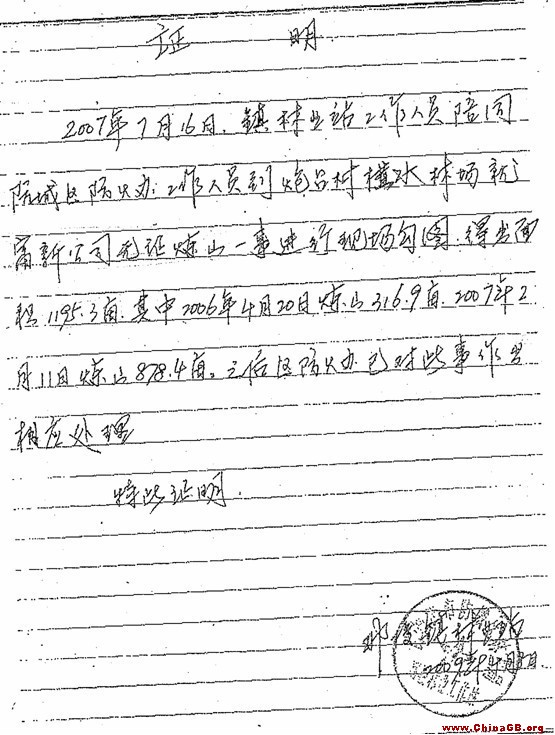 证 明
2007年7月16日,镇林业站工作人员陪同
防城区防火办工作人员到炮台村横水林场就
富新公司无证炼山一事进行现场勾图,得出面
积1195.3亩,其中2006年4月20日炼山316.9亩,2007年2
月11日炼山878.4亩。之后区防火办已对此事作出
相应处理
特此证明.
镇林业站
2009年4月日
www.ChinaGB.org